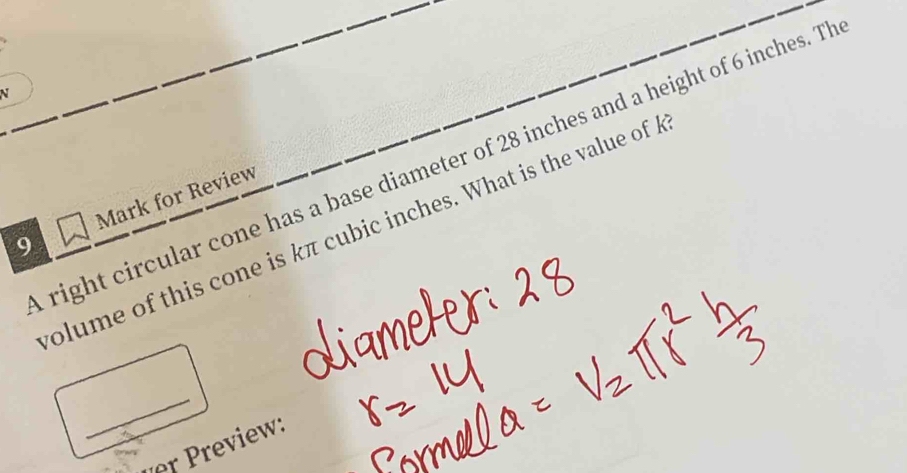 9 Mark for Review
A right circular cone has a base diameter of 28 inches and a height of 6 inches. The
volume of this cone is kπ cubic inches. What is the value of k?
diameter: 28
r = 14
Formella = V = πr² h/3
Preview: